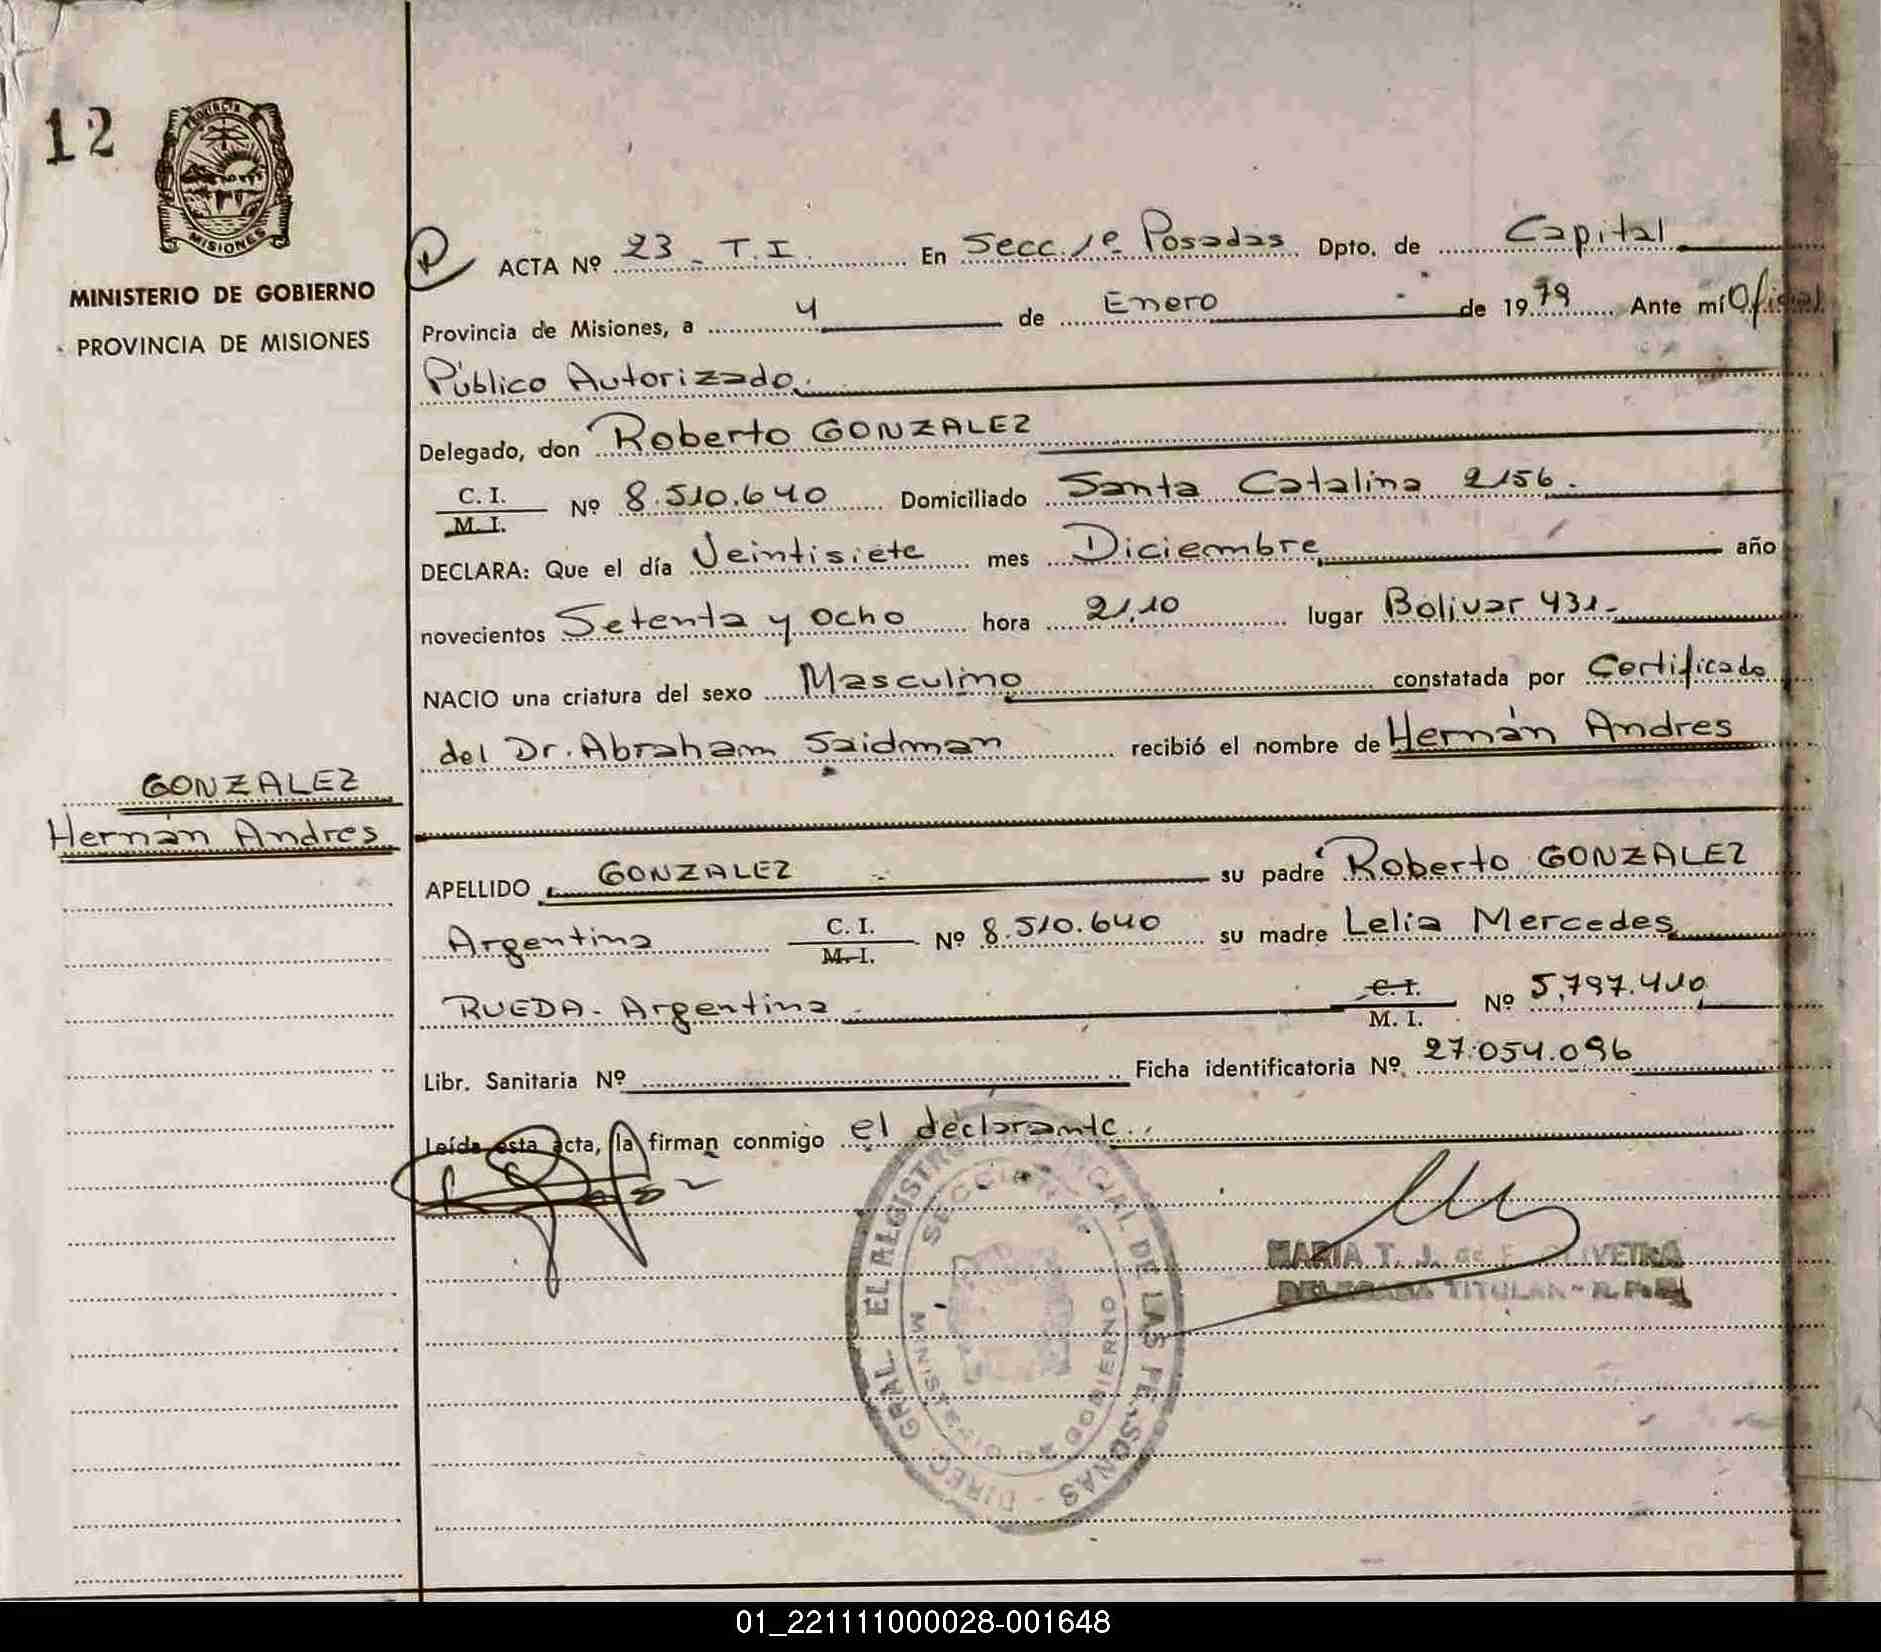 12
PROVINCIA
MISIONES
MINISTERIO DE GOBIERNO
PROVINCIA DE MISIONES
ACTA Nº 23 - T.I. En Secc. 1º Posadas Dpto. de Capital
Provincia de Misiones, a 4 de Enero de 1979 Ante mí Oficial
Público Autorizado
Delegado, don Roberto GONZALEZ
C. I. / M. I. Nº 8.510.640 Domiciliado Santa Catalina 2156.
DECLARA: Que el día Veintisiete mes Diciembre año
novecientos Setenta y ocho hora 21,10 lugar Bolivar 431-
NACIO una criatura del sexo Masculino constatada por Certificado
del Dr. Abraham Saidman recibió el nombre de Hernán Andres
GONZALEZ
Hernán Andres
APELLIDO GONZALEZ su padre Roberto GONZALEZ
Argentina C. I. / M. I. Nº 8.510.640 su madre Lelia Mercedes
RUEDA - Argentina C. I. / M. I. Nº 5.797.410
Libr. Sanitaria Nº Ficha identificatoria Nº 27.054.096
Leída esta acta, la firman conmigo el declarante.
MARIA T. J. de OLIVEIRA
DELEGADA TITULAR - R. P.
MINISTERIO DE GOBIERNO
01_221111000028-001648